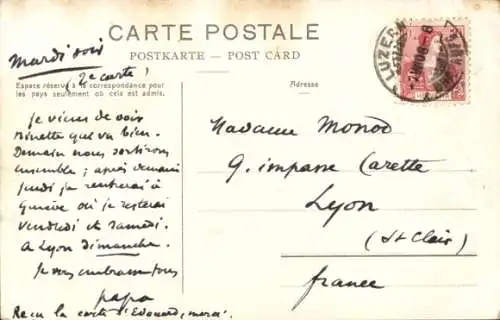 CARTE POSTALE
POSTKARTE — POST CARD
Espace réservé à la correspondance pour
les pays seulement où cela est admis.
Adresse
LUZERN
Mardi soir
(2e carte)
Je viens de voir
Minette qui va bien.
Demain nous sortirons
ensemble ; après demain
jeudi je rentrerai à
Genève où je resterai
vendredi et samedi.
A Lyon dimanche.
Je vous embrasse tous
papa
Reçu la carte d'Edouard, merci.
Madame Monod
9. impasse Carette
Lyon
(St Clair)
france